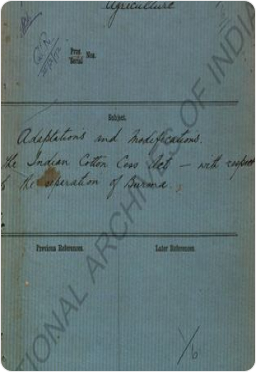 Agriculture
Prog. Nos.
Serial
Subject.
Adaptations and Modifications.
the Indian Cotton Cess Act – with respect
to the separation of Burma.
Previous References. Later References.
NATIONAL ARCHIVES OF INDIA